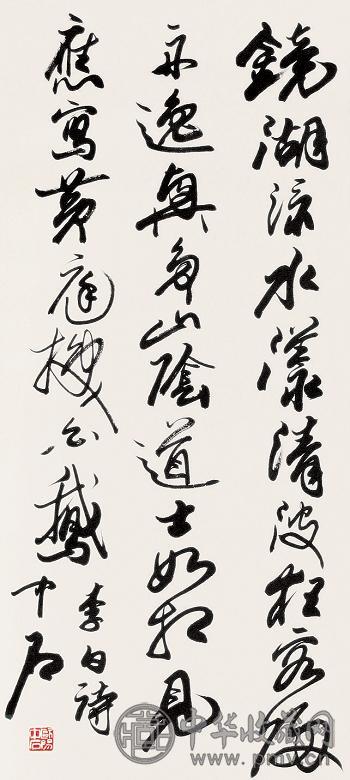 鏡湖流水漾清波狂客歸
舟逸興多山陰道士如相見
應寫黄庭換白鵝
李白詩
中石
中华收藏网